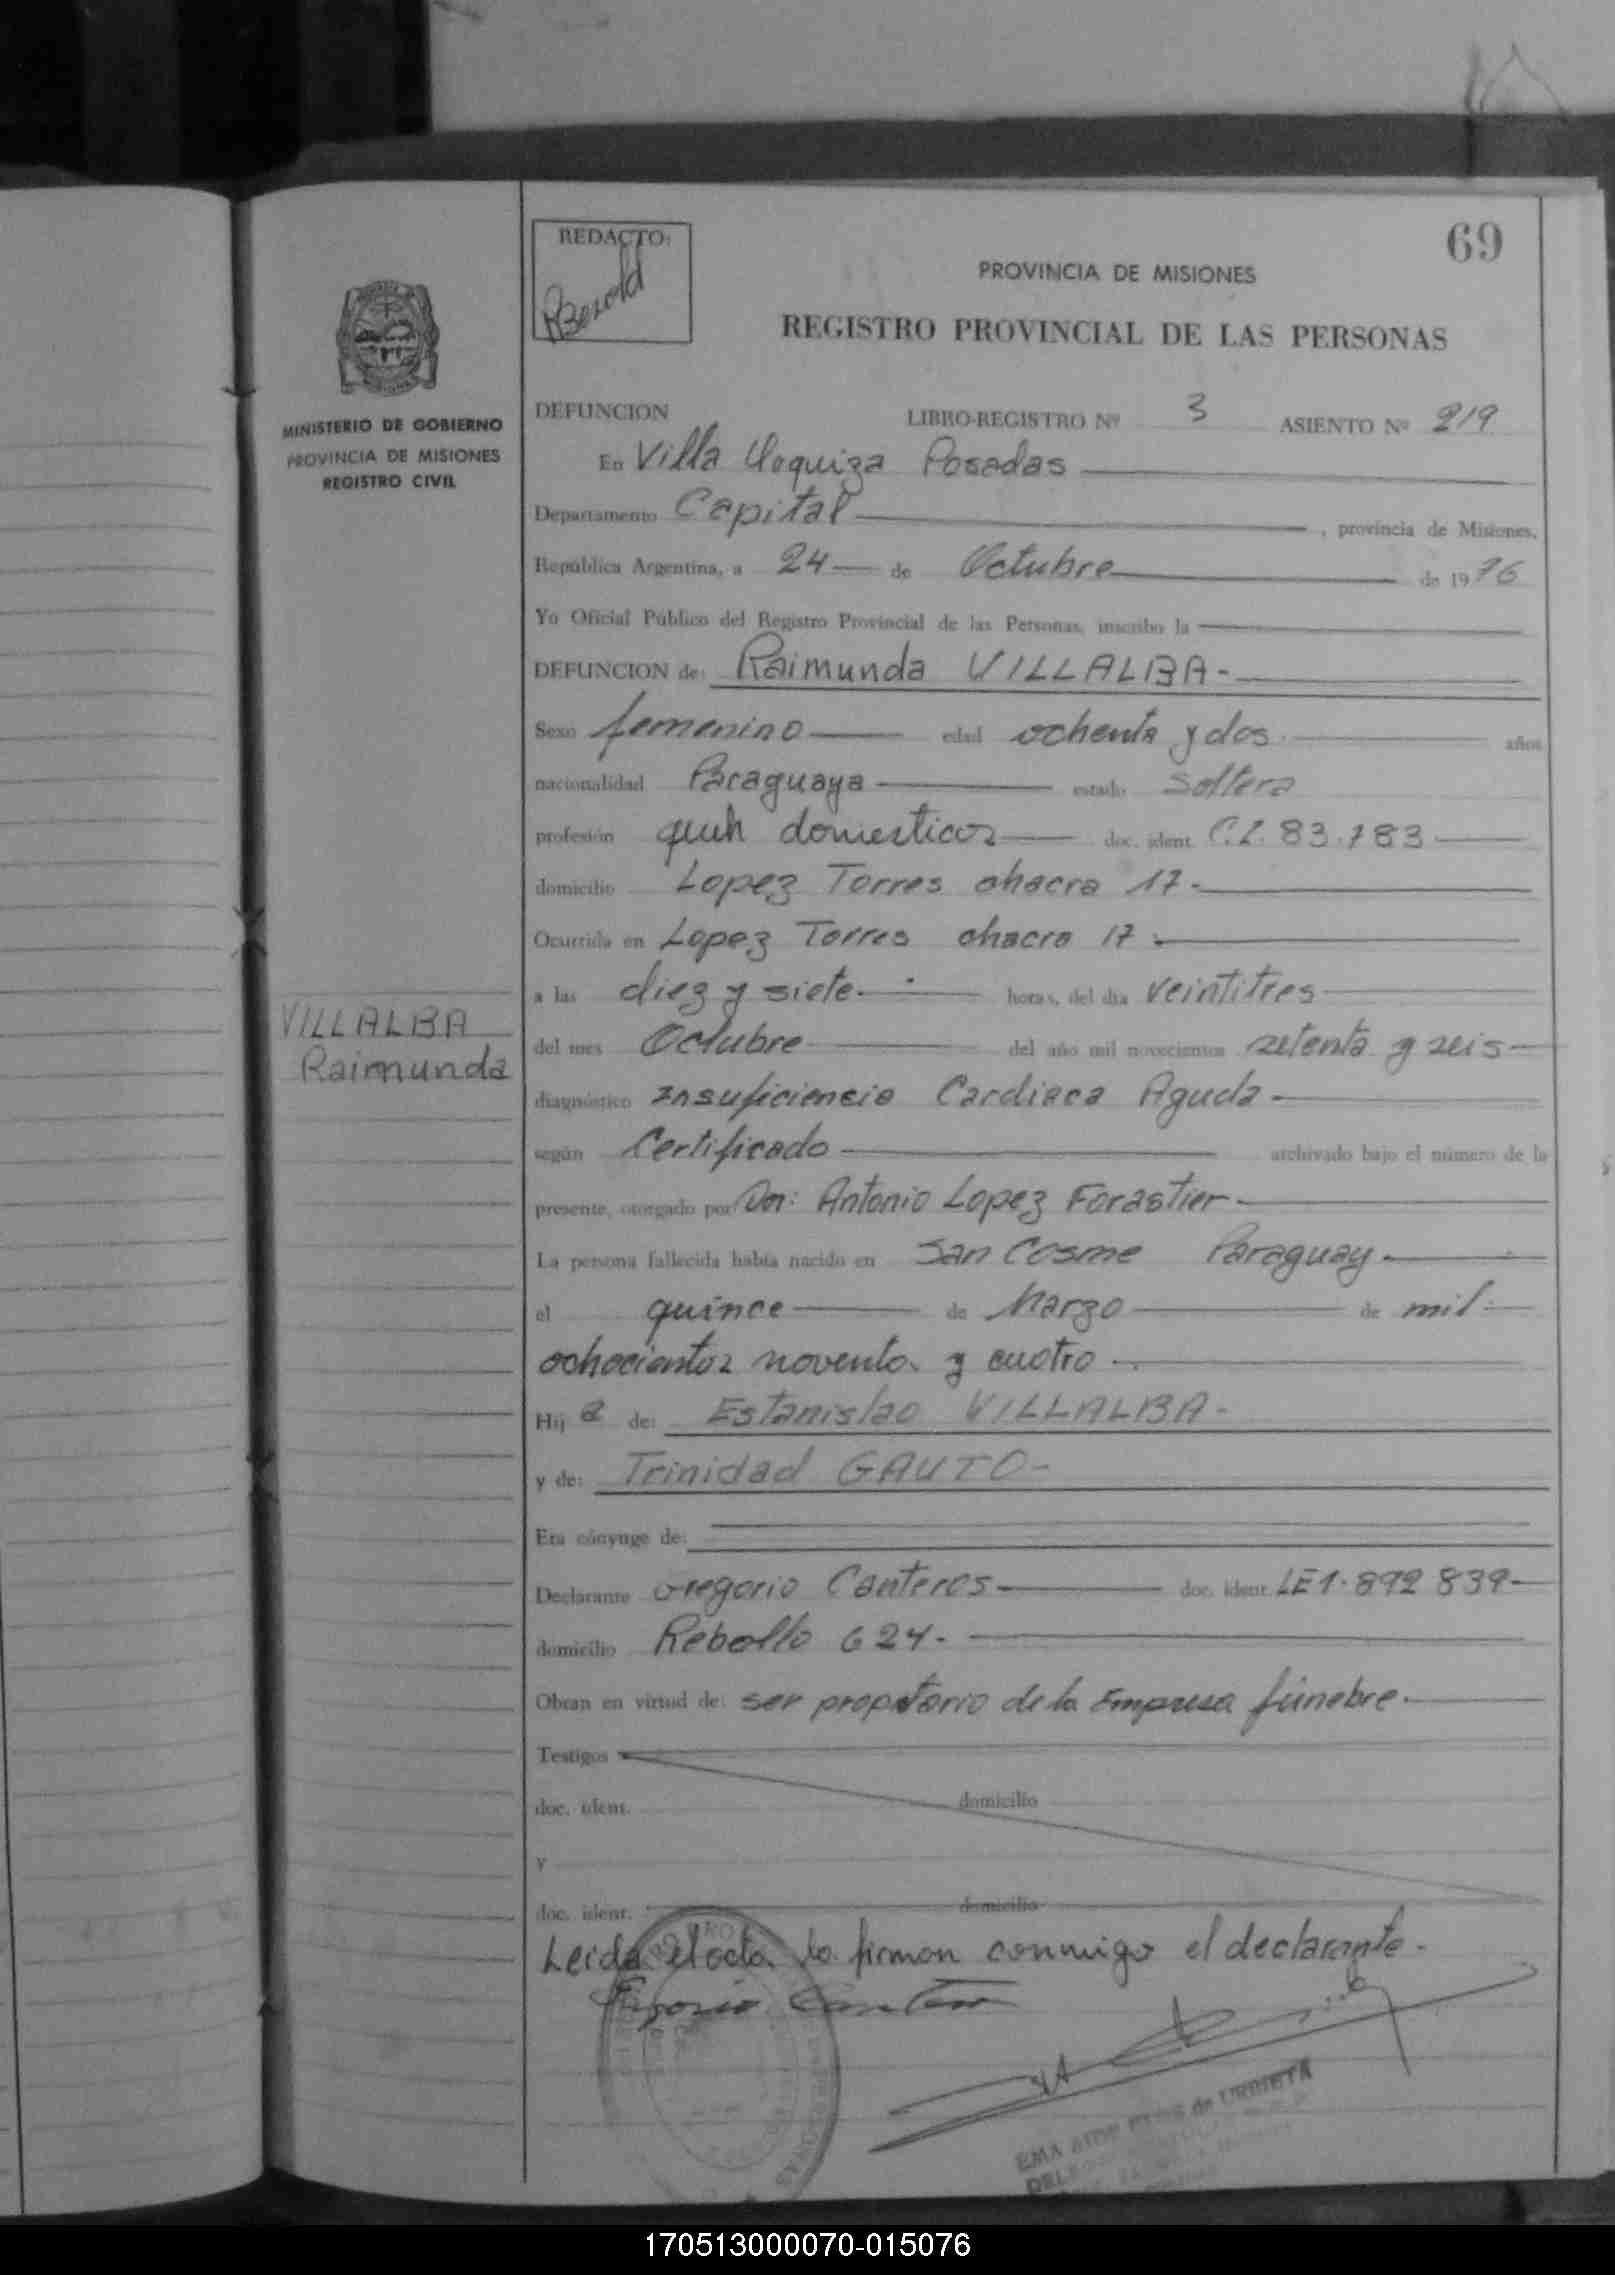 REDACTO:
69
PROVINCIA DE MISIONES
REGISTRO PROVINCIAL DE LAS PERSONAS
MINISTERIO DE GOBIERNO
PROVINCIA DE MISIONES
REGISTRO CIVIL
DEFUNCION LIBRO-REGISTRO Nº 3 ASIENTO Nº 219
En Villa Urquiza Posadas
Departamento Capital, provincia de Misiones,
República Argentina, a 24 de Octubre de 1976
Yo Oficial Público del Registro Provincial de las Personas, inscribo la
DEFUNCION de: Raimunda VILLALBA-
Sexo femenino edad ochenta y dos años
nacionalidad Paraguaya estado Soltera
profesión domesticos doc. ident. C.I. 83.783
domicilio Lopez Torres chacra 17-
Ocurrida en Lopez Torres chacra 17
a las diez y siete horas, del día veintitres
VILLALBA
Raimunda
del mes Octubre del año mil novecientos setenta y seis
diagnóstico Insuficiencia Cardiaca Aguda-
según Certificado archivado bajo el número de la
presente, otorgado por Dor: Antonio Lopez Forastier-
La persona fallecida había nacido en San Cosme Paraguay-
el quince de Marzo de mil
ochocientos noventa y cuatro
Hij a de: Estanislao VILLALBA-
y de: Trinidad GAUTO-
Era cónyuge de:
Declarante Gregorio Canteros doc. ident. LE 1.892 839
domicilio Rebollo 624.
Obran en virtud de: ser propetario de la Empresa fúnebre.
Testigos
doc. ident. domicilio
y
doc. ident. domicilio
Leida el acta la firman conmigo el declarante.
Gregorio Canteros
de URBIETA
170513000070-015076